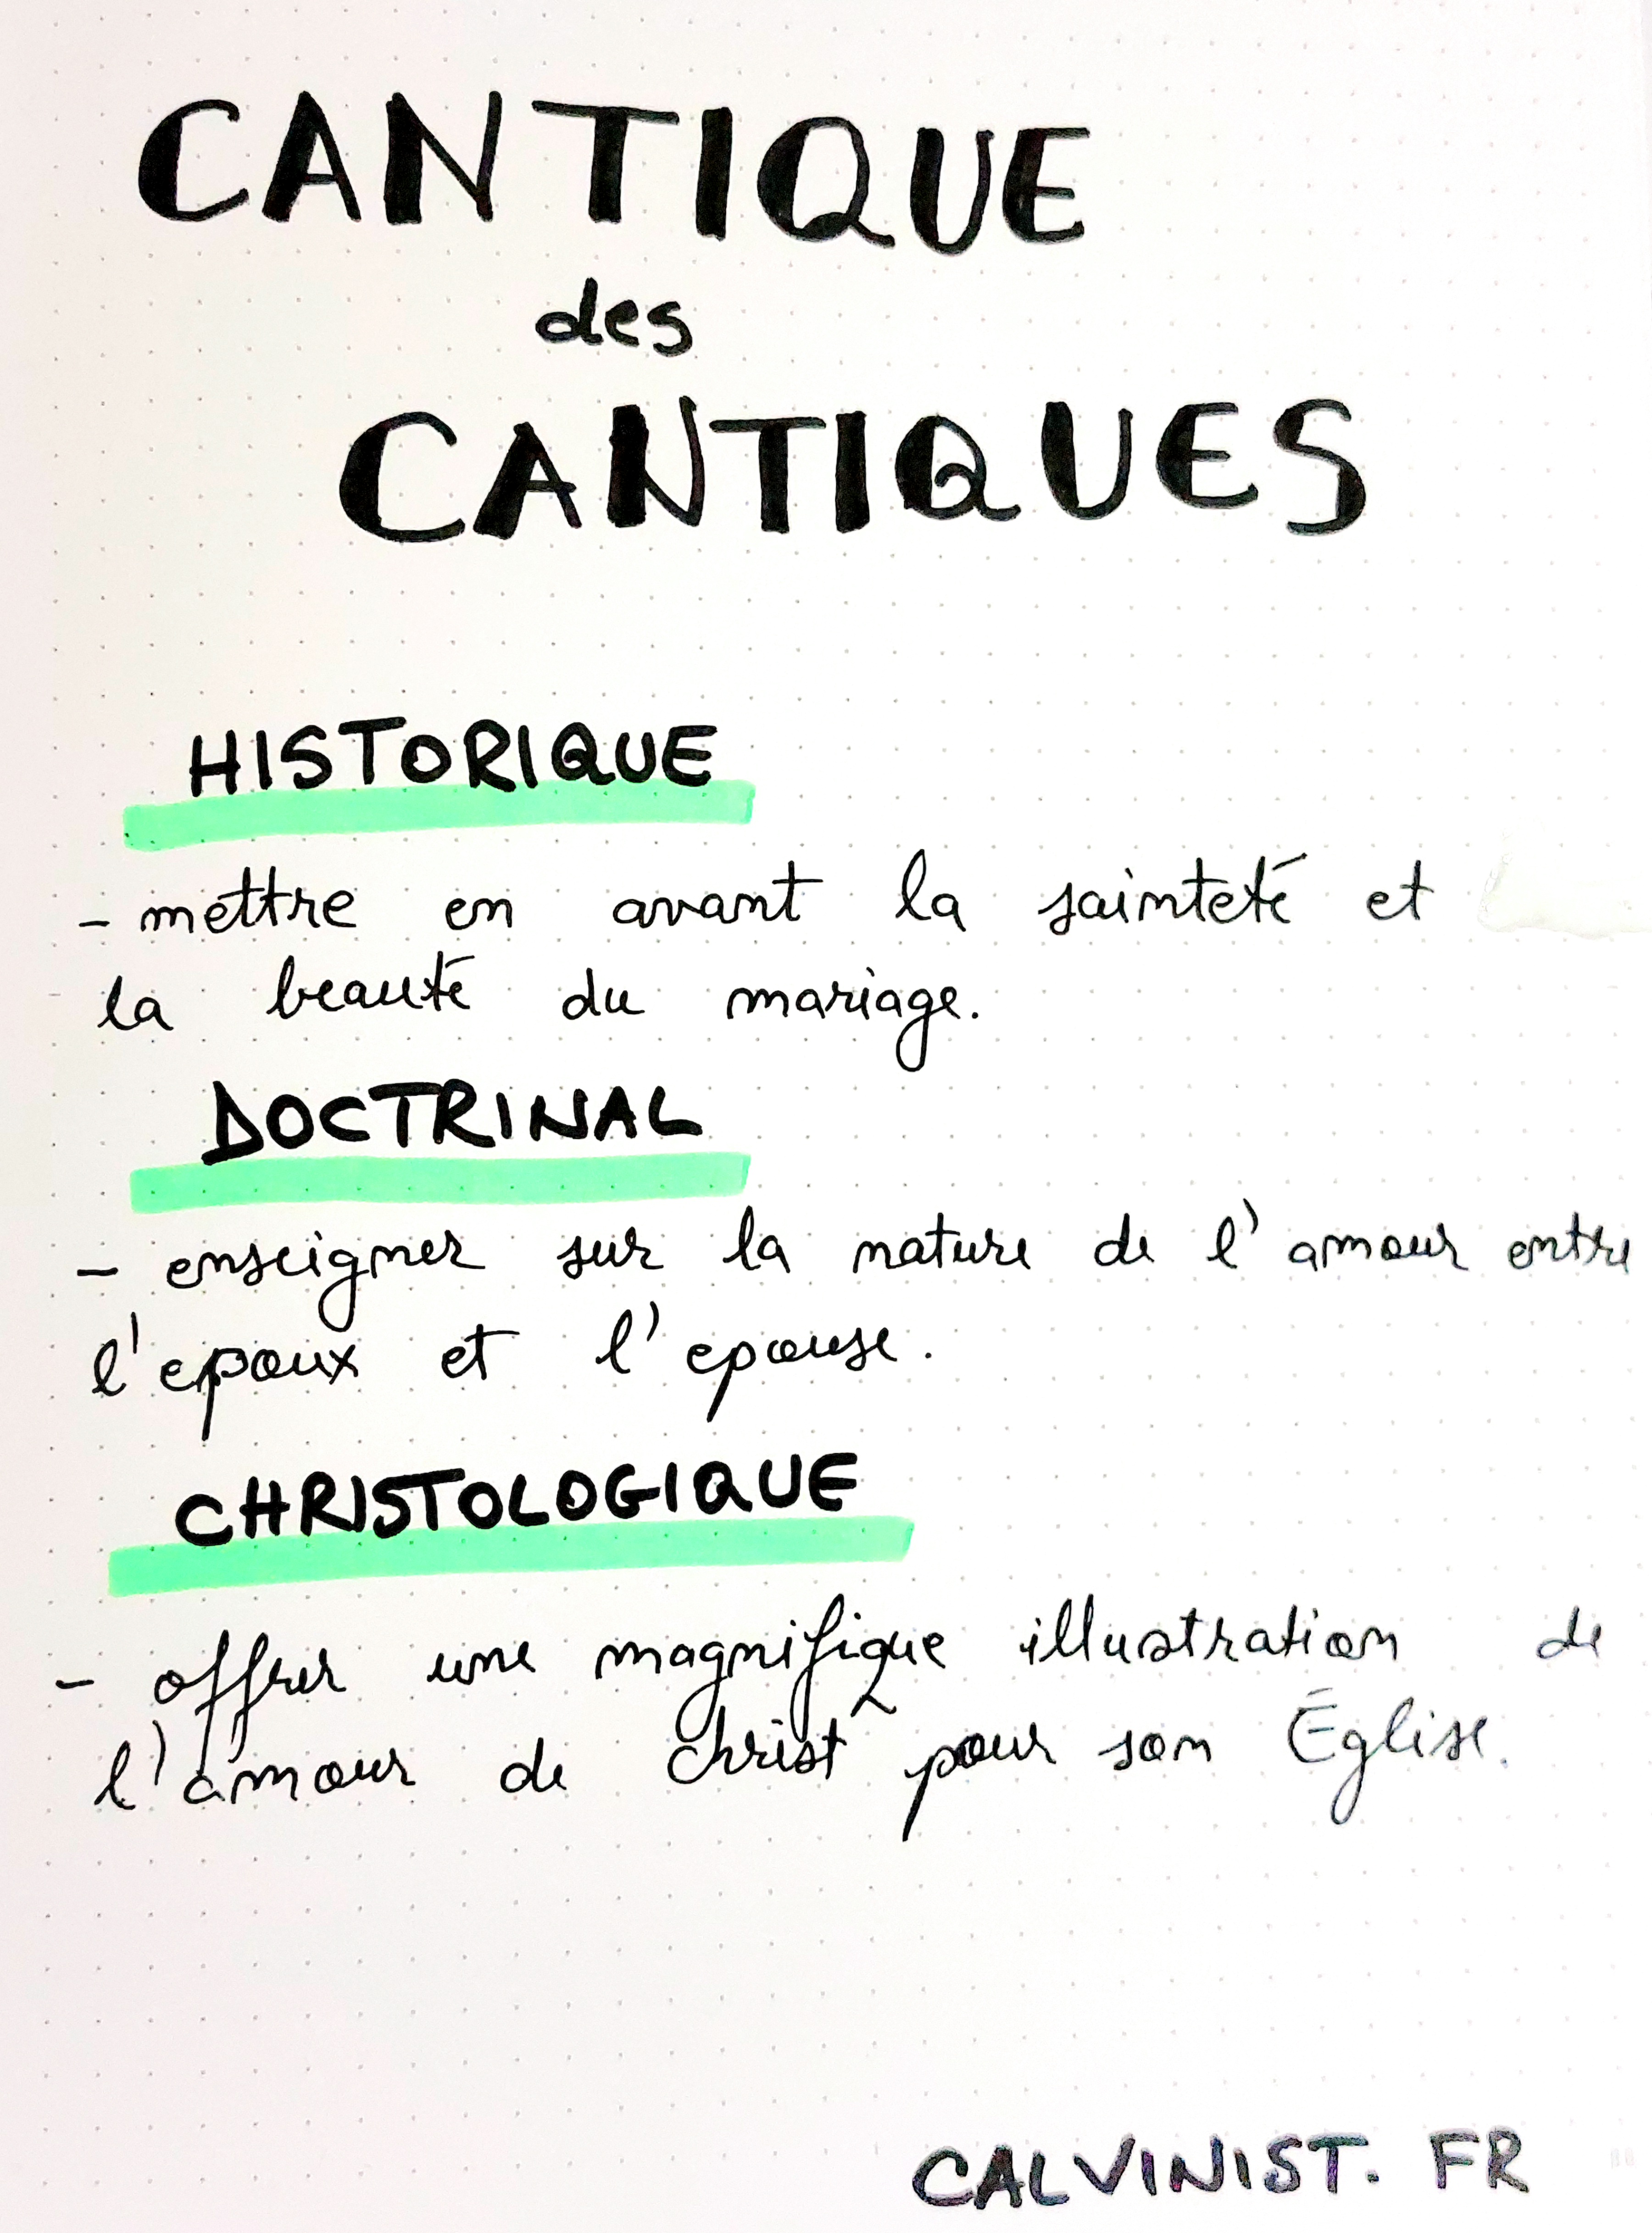 CANTIQUE
des
CANTIQUES
HISTORIQUE
- mettre en avant la sainteté et
la beauté du mariage.
DOCTRINAL
- enseigner sur la nature de l'amour entre
l'epoux et l'epouse.
CHRISTOLOGIQUE
- offrir une magnifique illustration de
l'amour de Christ pour son Église.
CALVINIST. FR